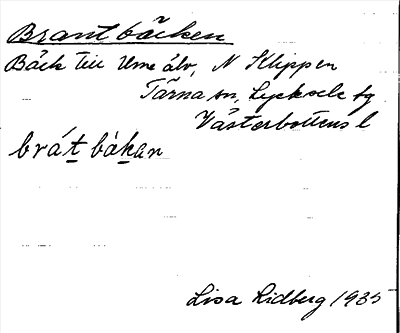 Brantbäcken
Bäck till Ume älv, N Klippen
Tärna sn, Lycksele tg
Västerbottens l
brát bákan
Lisa Lidberg 1935